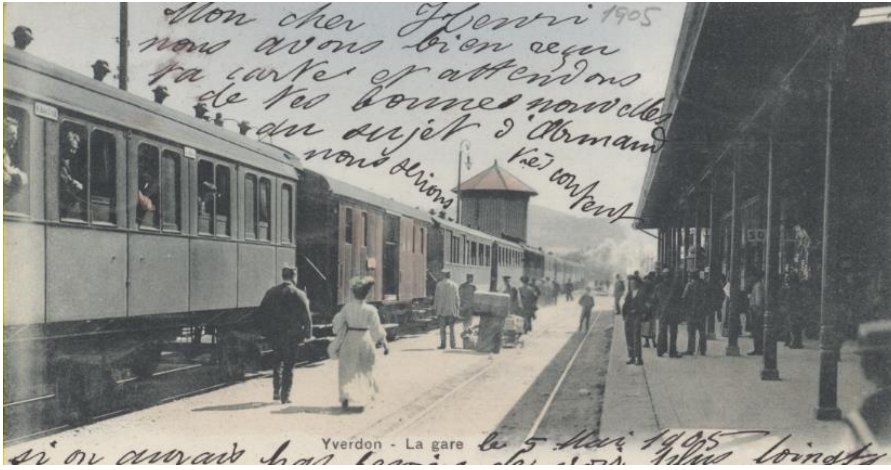 Mon cher Henri 1905
nous avons bien reçu
ta carte et attendons
de tes bonnes nouvelles
au sujet d'Armand
nous serions très content
Yverdon - La gare le 5 Mai 1905
si on aurais pas besoin de voir plus